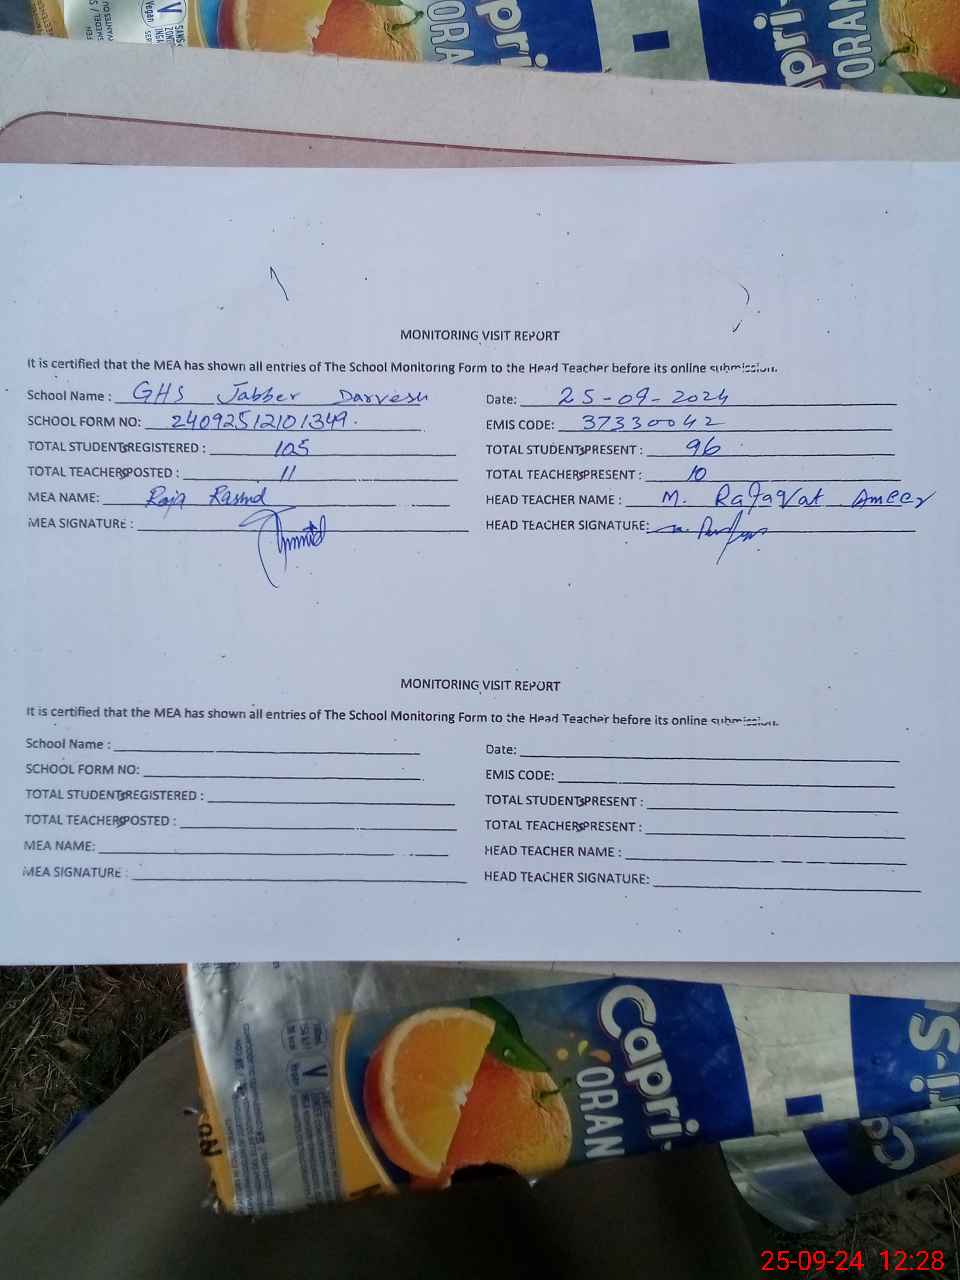 Capri
ORAN
pri-
ORAN
V
Vegan
MONITORING VISIT REPORT
It is certified that the MEA has shown all entries of The School Monitoring Form to the Head Teacher before its online submission.
School Name : GHS Jabber Darvesh Date: 25-09-2024
SCHOOL FORM NO: 24092512101349. EMIS CODE: 37330042
TOTAL STUDENTS REGISTERED : 105 TOTAL STUDENTS PRESENT : 96
TOTAL TEACHERS POSTED : 11 TOTAL TEACHERS PRESENT : 10
MEA NAME: Raja Rashid HEAD TEACHER NAME : M. Rafaqat Ameer
MEA SIGNATURE : HEAD TEACHER SIGNATURE:
MONITORING VISIT REPORT
It is certified that the MEA has shown all entries of The School Monitoring Form to the Head Teacher before its online submission.
School Name : Date:
SCHOOL FORM NO: EMIS CODE:
TOTAL STUDENTS REGISTERED : TOTAL STUDENTS PRESENT :
TOTAL TEACHERS POSTED : TOTAL TEACHERS PRESENT :
MEA NAME: HEAD TEACHER NAME :
MEA SIGNATURE : HEAD TEACHER SIGNATURE:
Capri-
ORAN
V
Capri-S
25-09-24 12:28